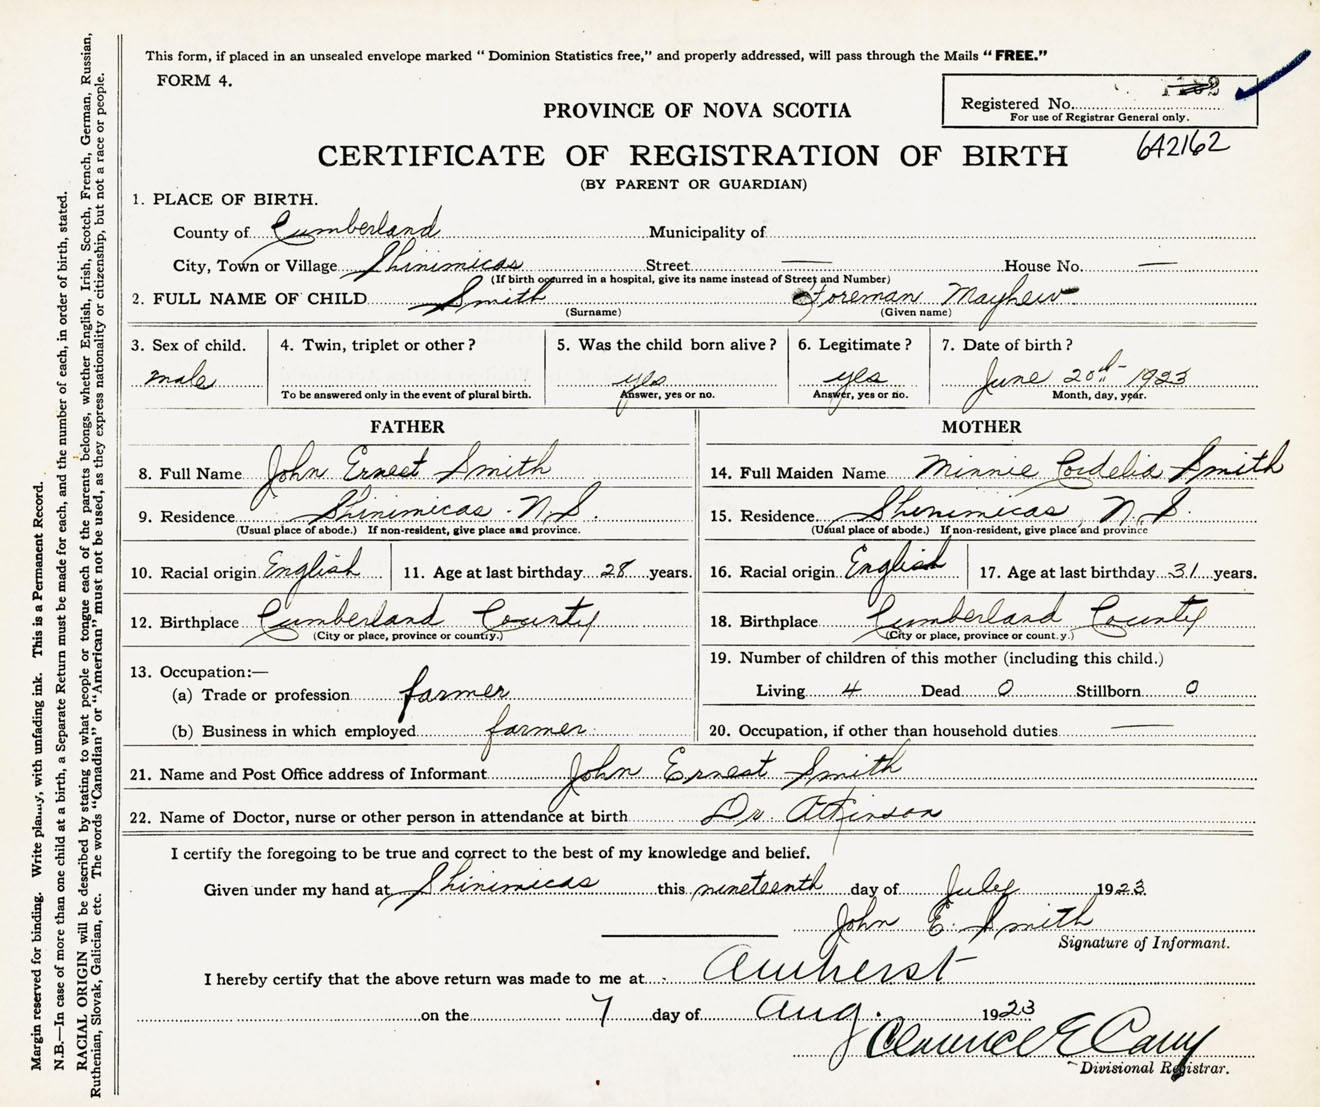 This form, if placed in an unsealed envelope marked “Dominion Statistics free,” and properly addressed, will pass through the Mails “FREE.”
FORM 4.
Registered No.
For use of Registrar General only.
642162
PROVINCE OF NOVA SCOTIA
CERTIFICATE OF REGISTRATION OF BIRTH
(BY PARENT OR GUARDIAN)
1. PLACE OF BIRTH.
County of Cumberland Municipality of
City, Town or Village Shinimicas Street — House No. —
(If birth occurred in a hospital, give its name instead of Street and Number)
2. FULL NAME OF CHILD Smith Foreman Mayhew
(Surname) (Given name)
3. Sex of child. 4. Twin, triplet or other? 5. Was the child born alive? 6. Legitimate? 7. Date of birth?
male yes yes June 20th 1923
To be answered only in the event of plural birth. Answer, yes or no. Answer, yes or no. Month, day, year.
FATHER MOTHER
8. Full Name John Ernest Smith 14. Full Maiden Name Minnie Cordelia Smith
9. Residence Shinimicas N.S. 15. Residence Shinimicas, N.S.
(Usual place of abode.) If non-resident, give place and province. (Usual place of abode.) If non-resident, give place and province
10. Racial origin English 11. Age at last birthday 28 years. 16. Racial origin English 17. Age at last birthday 31 years.
12. Birthplace Cumberland County 18. Birthplace Cumberland County
(City or place, province or county.) (City or place, province or count.y.)
13. Occupation:— 19. Number of children of this mother (including this child.)
(a) Trade or profession farmer Living 4 Dead 0 Stillborn 0
(b) Business in which employed farmer 20. Occupation, if other than household duties —
21. Name and Post Office address of Informant John Ernest Smith
22. Name of Doctor, nurse or other person in attendance at birth Dr Atkinson
I certify the foregoing to be true and correct to the best of my knowledge and belief.
Given under my hand at Shinimicas this nineteenth day of July 1923
John E. Smith
Signature of Informant.
I hereby certify that the above return was made to me at Amherst
on the 7 day of Aug. 1923
Clarence E Carry
Divisional Registrar.
Margin reserved for binding. Write plainly, with unfading ink. This is a Permanent Record.
N.B.—In case of more than one child at a birth, a Separate Return must be made for each, and the number of each, in order of birth, stated.
RACIAL ORIGIN will be described by stating to what people or tongue each of the parents belongs, whether English, Irish, Scotch, French, German, Russian,
Ruthenian, Slovak, Galician, etc. The words “Canadian” or “American” must not be used, as they express nationality or citizenship, but not a race or people.